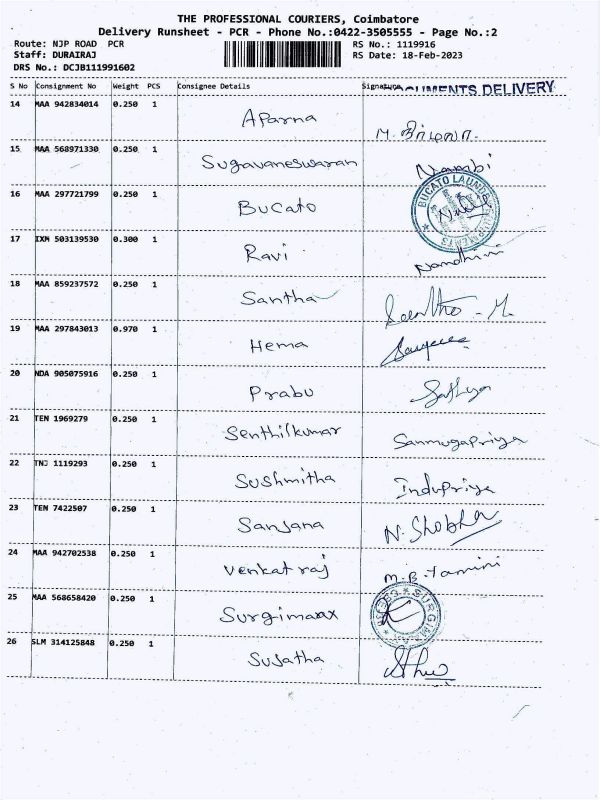 THE PROFESSIONAL COURIERS, Coimbatore
Delivery Runsheet - PCR - Phone No.:0422-3505555 - Page No.:2
Route: NJP ROAD PCR
RS No.: 1119916
Staff: DURAIRAJ
RS Date: 18-Feb-2023
DRS No.: DCJB111991602
S No Consignment No Weight PCS Consignee Details Signature
DOCUMENTS DELIVERY
14 MAA 942834014 0.250 1 Aparna M. நிர்மலா.
15 MAA 568971330 0.250 1 Sugavaneswaran Nambi
16 MAA 297721799 0.250 1 Bucato BUCATO LAUNDRY EQUIPMENTS
17 IXM 503139530 0.300 1 Ravi Nandhini
18 MAA 859237572 0.250 1 Santha Santha - M.
19 MAA 297843013 0.970 1 Hema
20 NDA 905075916 0.250 1 Prabu Sathya
21 TEN 1969279 0.250 1 Senthilkumar Sanmugapriya
22 TNJ 1119293 0.250 1 Sushmitha Indupriya
23 TEN 7422507 0.250 1 Sanjana N. Shobha
24 MAA 942702538 0.250 1 Venkat raj M.B. Tamini
25 MAA 568658420 0.250 1 Surgimaxx
26 SLM 314125848 0.250 1 Sujatha